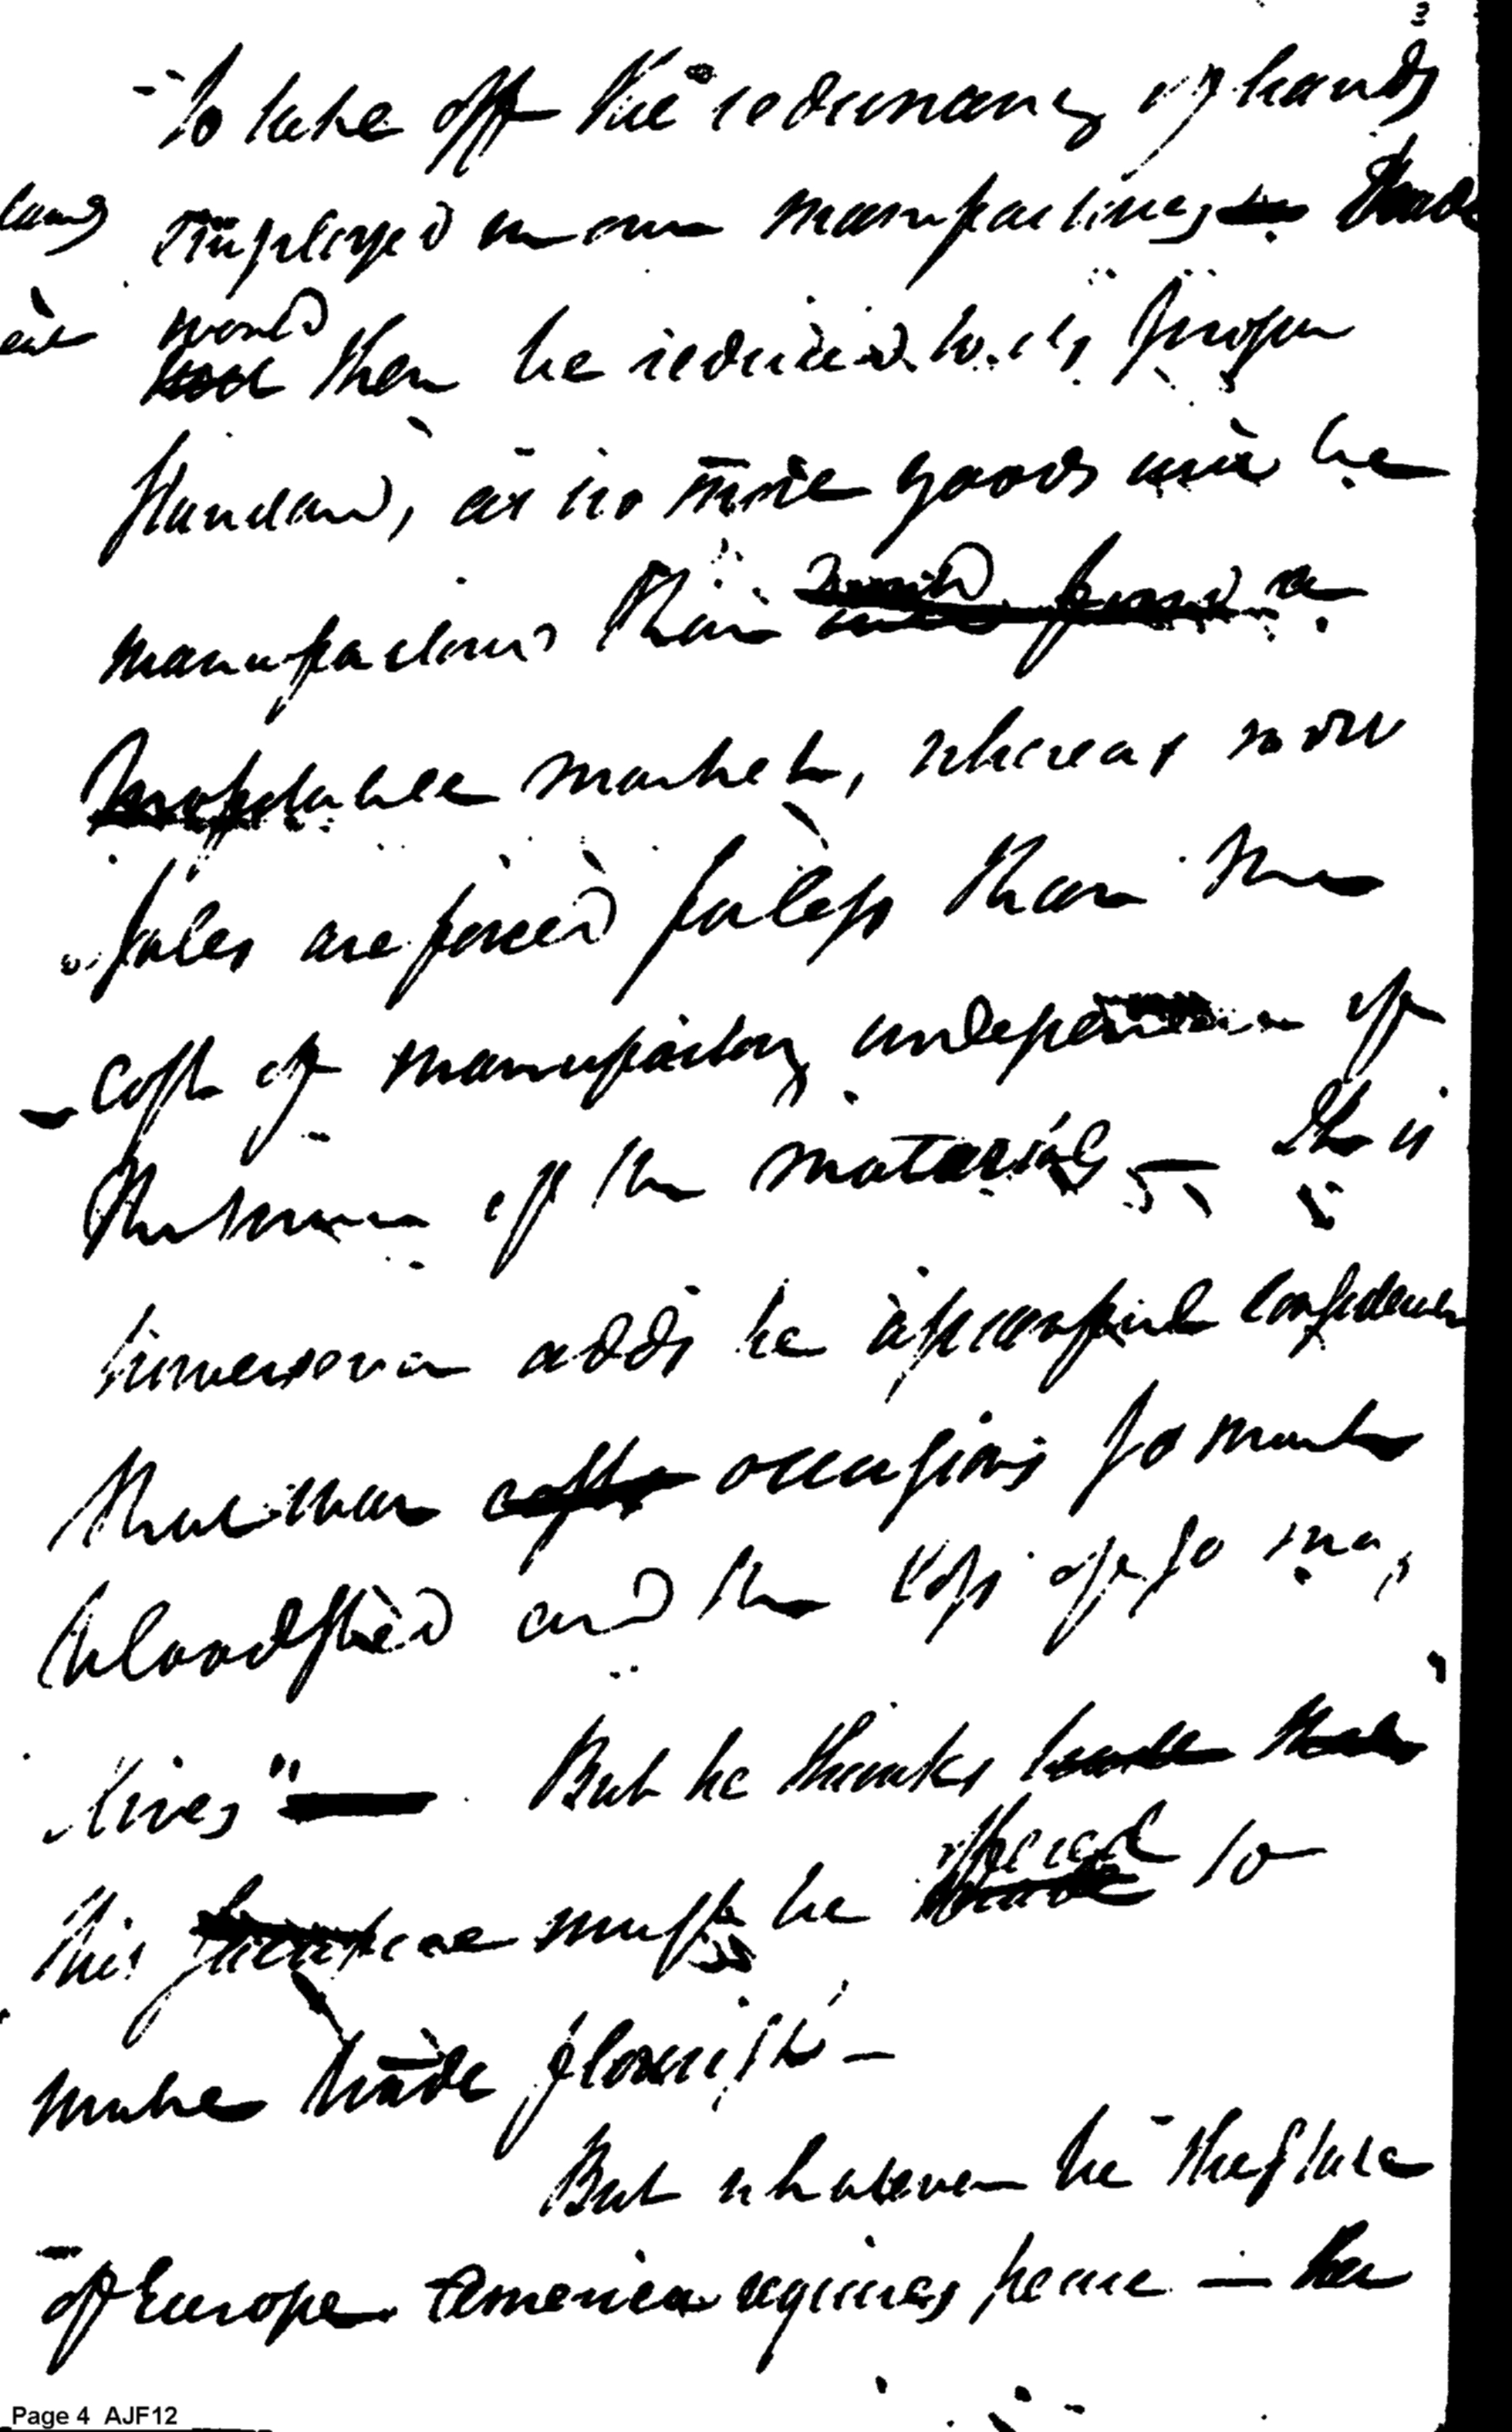 to take off the redundancy of hands
employed in our manufactures trade
would then be reduced to its proper
standard, as no more goods will be
manufactured than would find a
profitable market, whereas now
sales are forced for less than the
cost of manufactory independent of
the of the materials — It is
adds he confidence
that war occasions so much
bloodshed and the loss of so many
lives" — But he thinks
this sacrifice must be to
make trade flourish —
But whatever be the state
of Europe America requires peace — her
Page 4 AJF12